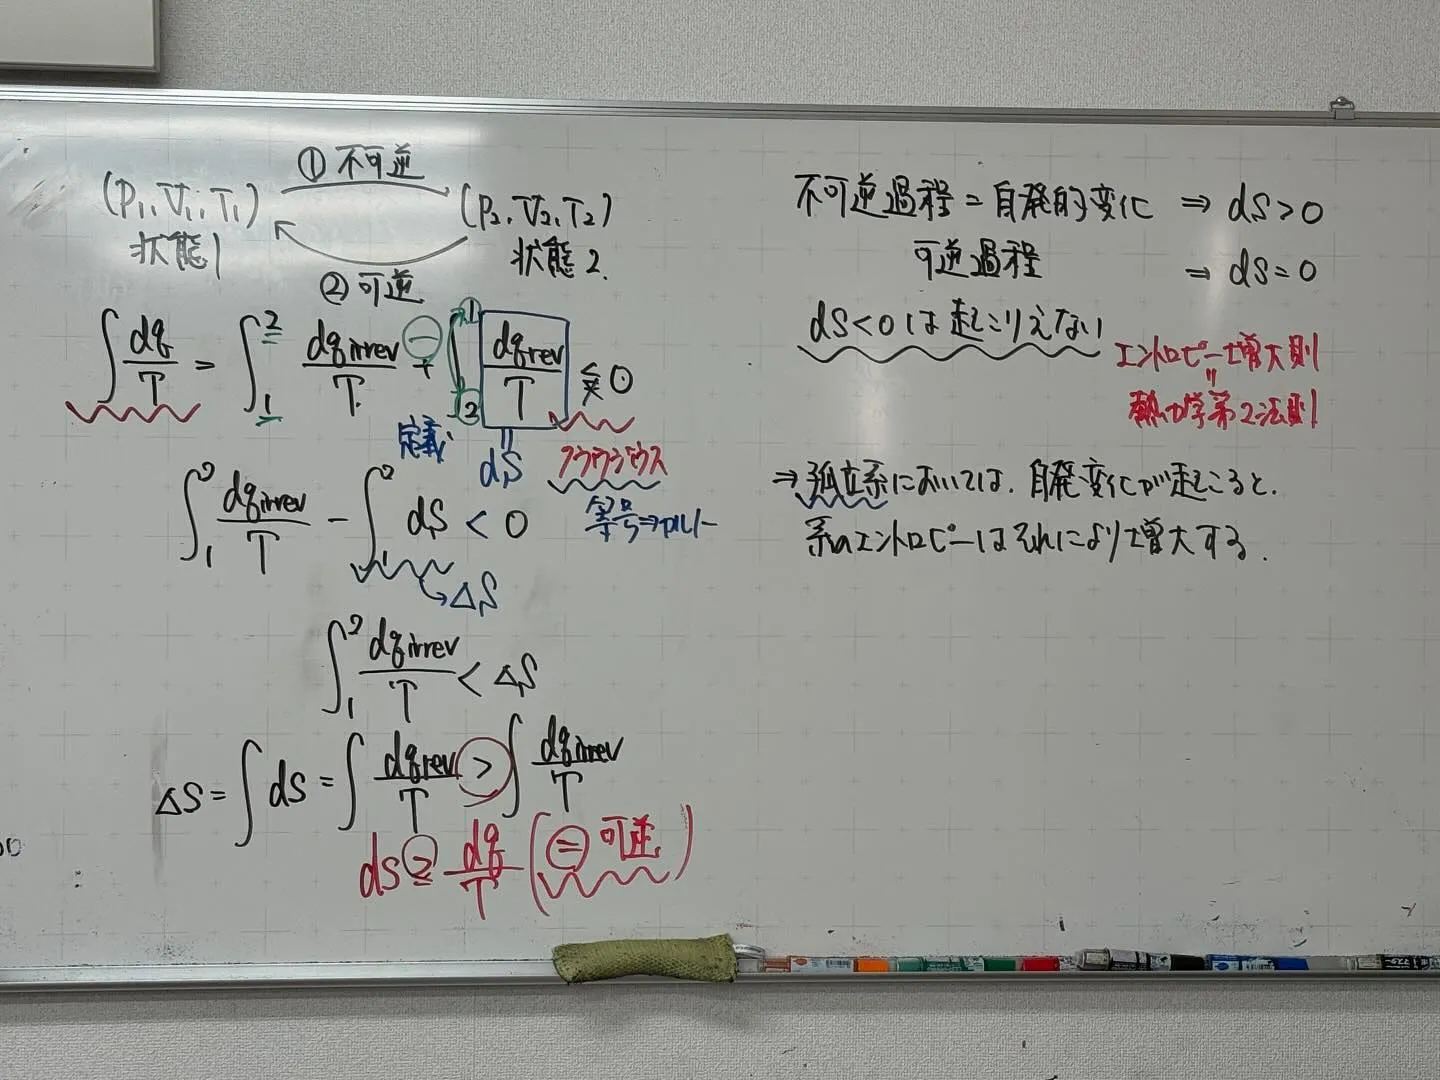 ① 不可逆
(P₁, V₁, T₁) (P₂, V₂, T₂)
状態1 状態2.
② 可逆
∫ dq/T = ∫₁² dq irrev/T + ⊖ ∫②① dq rev/T ≦ 0
定義 dS クラウジウス
∫₁² dq irrev/T − ∫₁² dS < 0 等号⇒カルノー
→ΔS
∫₁² dq irrev/T < ΔS
ΔS = ∫ dS = ∫ dq rev/T > ∫ dq irrev/T
dS ≧ dq/T (= 可逆)
不可逆過程 = 自発的変化 ⇒ dS > 0
可逆過程 ⇒ dS = 0
dS < 0 は起こりえない
エントロピー増大則
〃
熱力学第2法則
⇒ 孤立系においては、自発変化が起こると、
系のエントロピーはそれにより増大する.